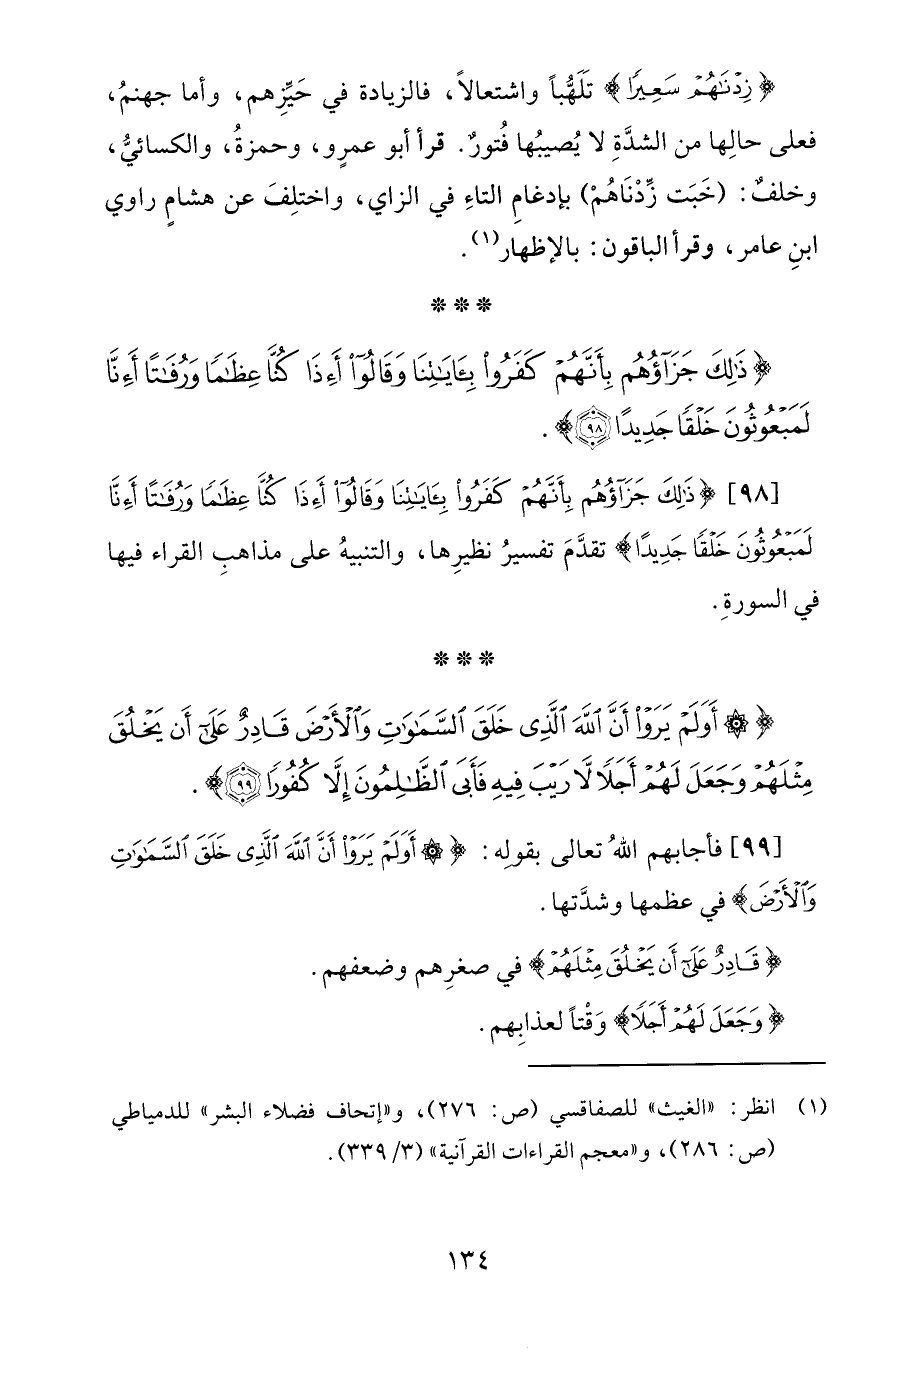 ﴿زِدْنَاهُمْ سَعِيرًا﴾ تَلَهُّباً واشتعالاً، فالزيادة في حَيِّزِهم، وأما جهنمُ،
فعلى حالِها من الشدَّةِ لا يُصيبُها فُتورٌ. قرأ أبو عمرٍو، وحمزةُ، والكسائيُّ،
وخلفٌ: (خَبَت زِّدْنَاهُمْ) بإدغامِ التاءِ في الزاي، واختلِفَ عن هشامٍ راوي
ابنِ عامر، وقرأ الباقون: بالإظهار(١).
* * *
﴿ذَٰلِكَ جَزَآؤُهُم بِأَنَّهُمْ كَفَرُوا۟ بِـَٔايَـٰتِنَا وَقَالُوٓا۟ أَءِذَا كُنَّا عِظَـٰمًا وَرُفَـٰتًا أَءِنَّا
لَمَبْعُوثُونَ خَلْقًا جَدِيدًا ٩٨﴾.
[٩٨] ﴿ذَٰلِكَ جَزَآؤُهُم بِأَنَّهُمْ كَفَرُوا۟ بِـَٔايَـٰتِنَا وَقَالُوٓا۟ أَءِذَا كُنَّا عِظَـٰمًا وَرُفَـٰتًا أَءِنَّا
لَمَبْعُوثُونَ خَلْقًا جَدِيدًا﴾ تقدَّمَ تفسيرُ نظيرِها، والتنبيهُ على مذاهبِ القراء فيها
في السورةِ.
* * *
﴿۞ أَوَلَمْ يَرَوْا۟ أَنَّ ٱللَّهَ ٱلَّذِى خَلَقَ ٱلسَّمَـٰوَٰتِ وَٱلْأَرْضَ قَادِرٌ عَلَىٰٓ أَن يَخْلُقَ
مِثْلَهُمْ وَجَعَلَ لَهُمْ أَجَلًا لَّا رَيْبَ فِيهِ فَأَبَى ٱلظَّـٰلِمُونَ إِلَّا كُفُورًا ٩٩﴾.
[٩٩] فأجابهم اللهُ تعالى بقولِه: ﴿۞ أَوَلَمْ يَرَوْا۟ أَنَّ ٱللَّهَ ٱلَّذِى خَلَقَ ٱلسَّمَـٰوَٰتِ
وَٱلْأَرْضَ﴾ في عظمها وشدَّتها.
﴿قَادِرٌ عَلَىٰٓ أَن يَخْلُقَ مِثْلَهُمْ﴾ في صغرِهم وضعفهم.
﴿وَجَعَلَ لَهُمْ أَجَلًا﴾ وَقْتاً لعذابِهم.
(١) انظر: «الغيث» للصفاقسي (ص: ٢٧٦)، و«إتحاف فضلاء البشر» للدمياطي
(ص: ٢٨٦)، و«معجم القراءات القرآنية» (٣/ ٣٣٩).
١٣٤